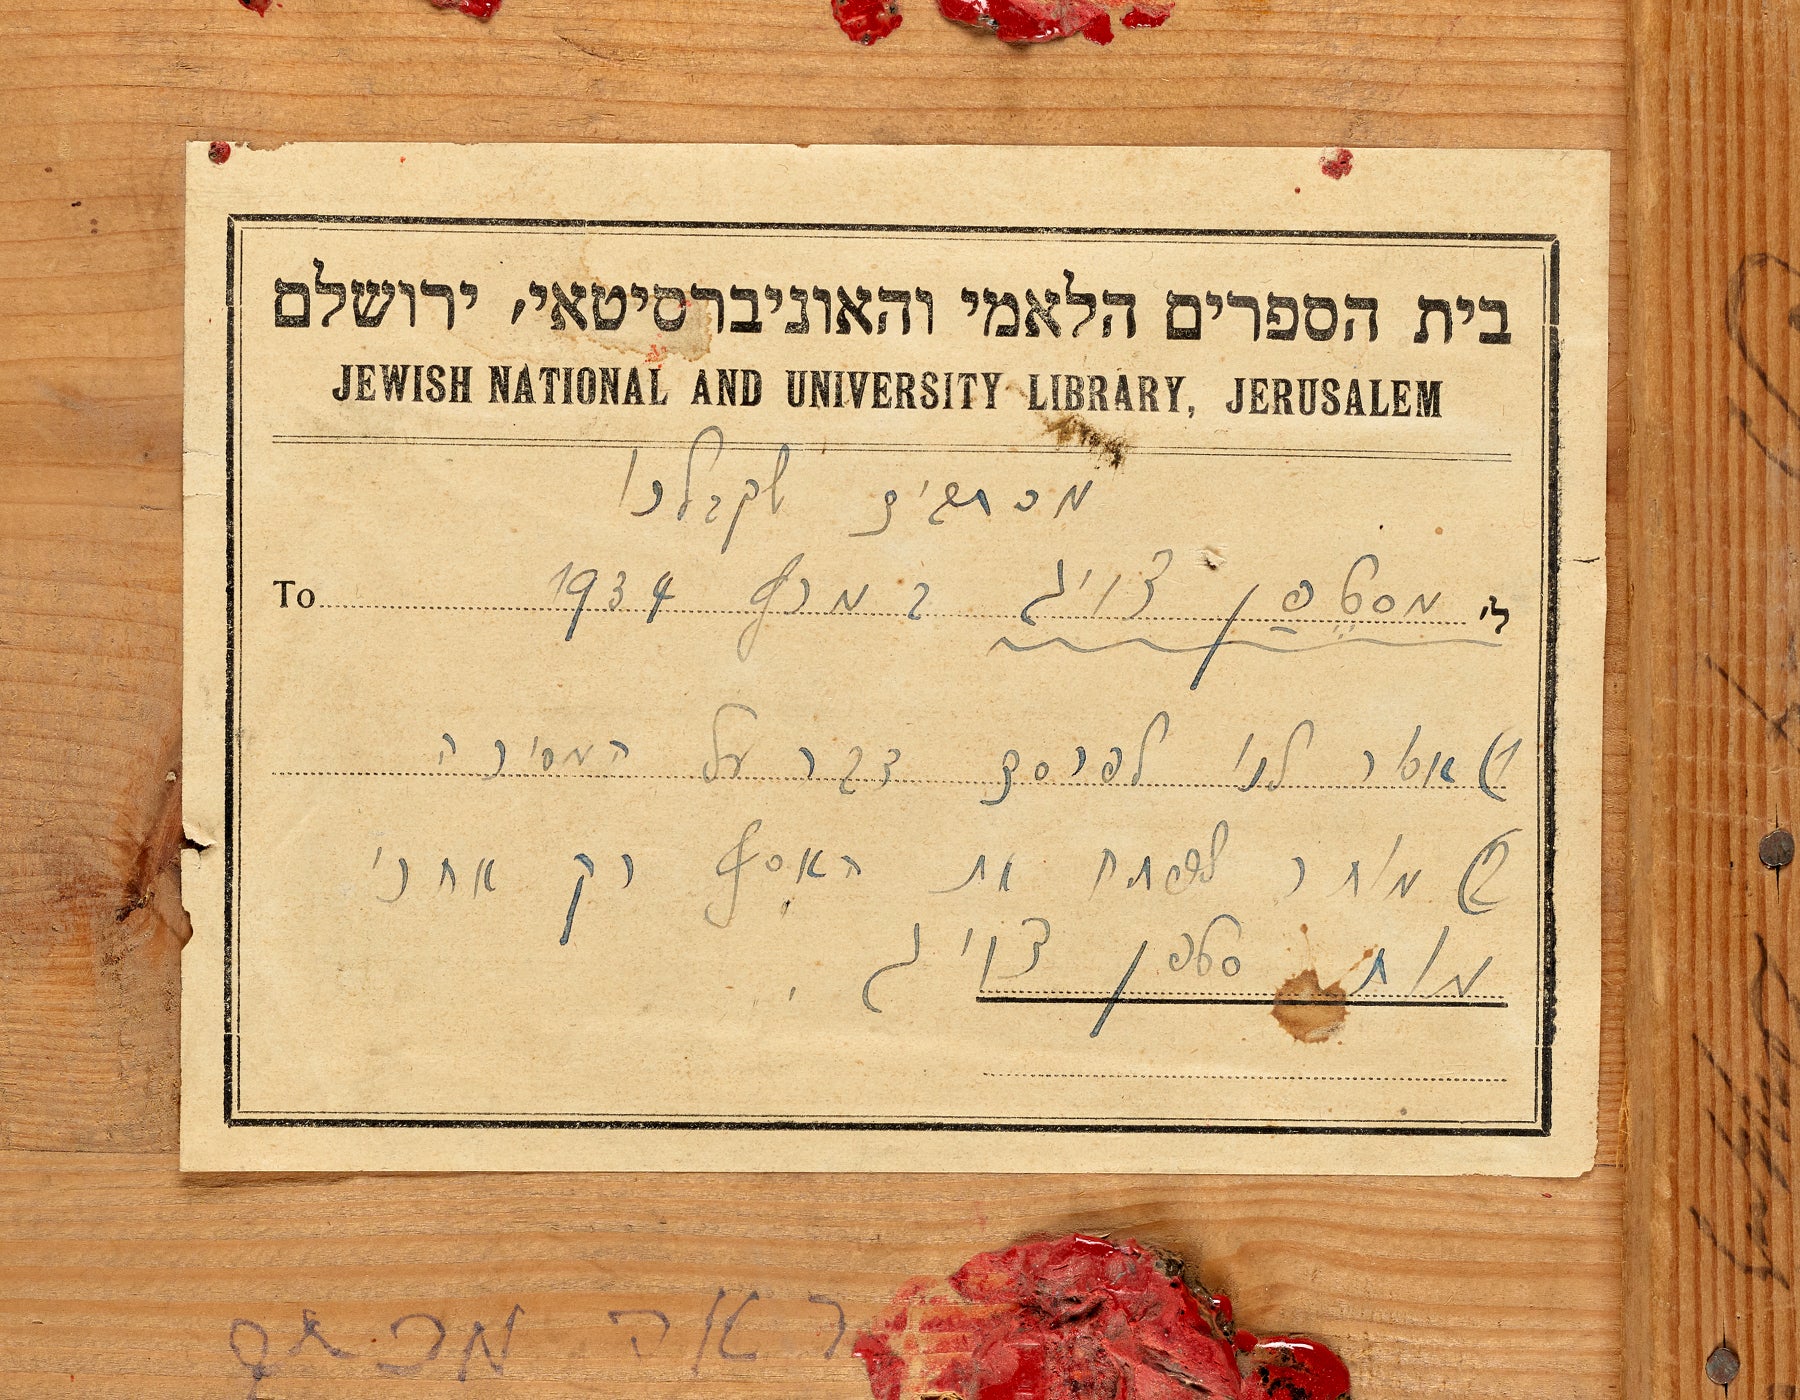 בית הספרים הלאמי והאוניברסיטאי, ירושלם
JEWISH NATIONAL AND UNIVERSITY LIBRARY, JERUSALEM
מכתבים שקבלנו
To לי מסטפן צוויג במרץ 1934
א) אסור לנו לפרסם דבר על המסירה
ב) מותר לפתח את האסף רק אחרי
מות סטפן צוויג.
ראה מכתב